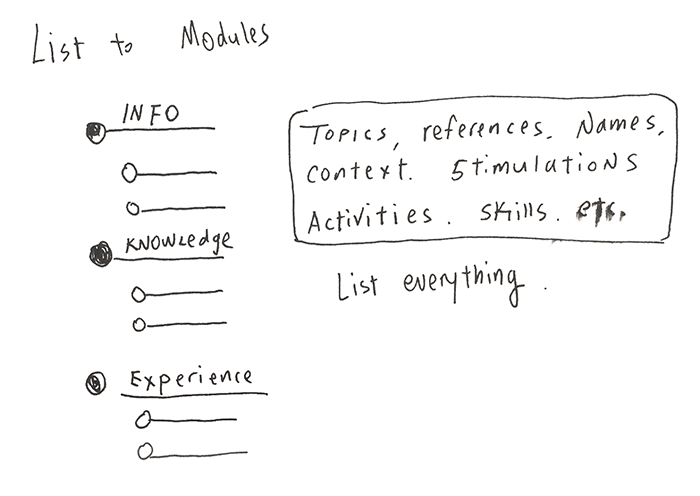 List to Modules
INFO
KNOWledge
Experience
Topics, references. Names,
context. Stimulations
Activities. skills. etc.
List everything.